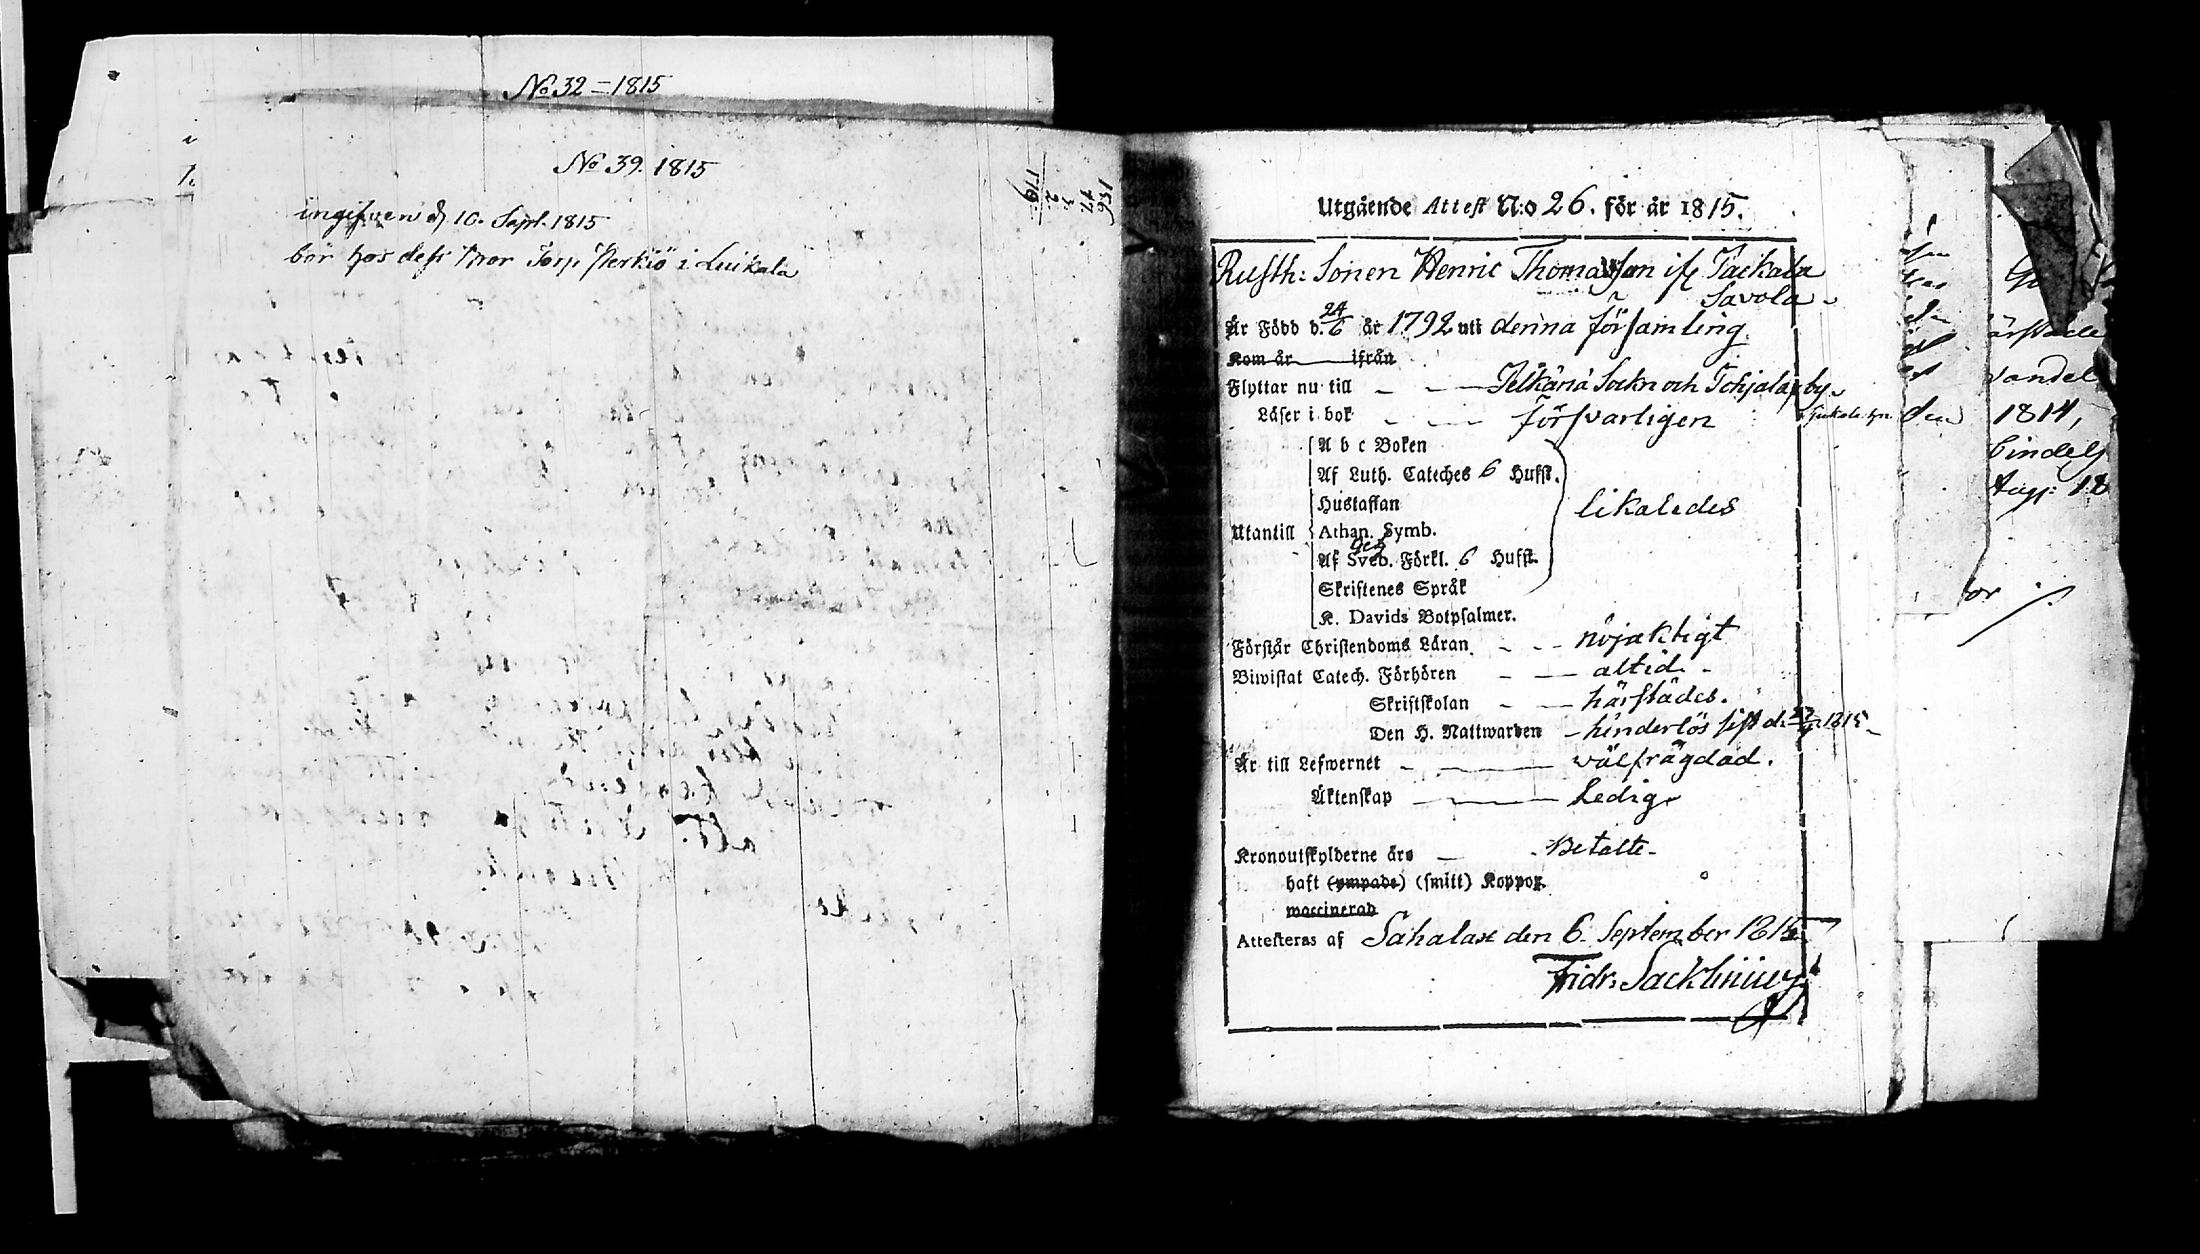 No 32 = 1815
No 39. 1815
ingifven d 10. Sept. 1815
bor hos dess Mor Torp Perkiö i Luikala
156
47
3
2
1719
Utgående Attest N:o 26. för år 1815.
Rusth: Sonen Henric Thomasson if Tackala
Savola
Är Född d. 24/6 år 1792 uti denna församling.
Kom år ifrån
Flyttar nu till Pelkäna Sockn och Tohjala by.
Läser i bok försvarligen
A b c Boken
Af Luth. Cateches 6 Hufst.
Hustaflan
Utantill Athan. Symb.
Af Sveb. Förkl. 6 Hufst.
likaledes
Skriftenes Språk
K. Davids Botpsalmer.
Förstår Christendoms Läran nöjaktigt
Biwistat Catech. Förhören altid
Skriftskolan härstädes.
Den H. Nattwarden hinderlös sist d. 1815
Är till Lefwernet välfrägdad.
Äktenskap Ledig
Kronoutskylderne äro Betalte
haft (ympade) (smitt) Koppor.
waccinerad
Attesteras af Sahalax den 6. September 1815
Fridr. Sacklinius
den
ärstäde
vandel
1814,
bindels